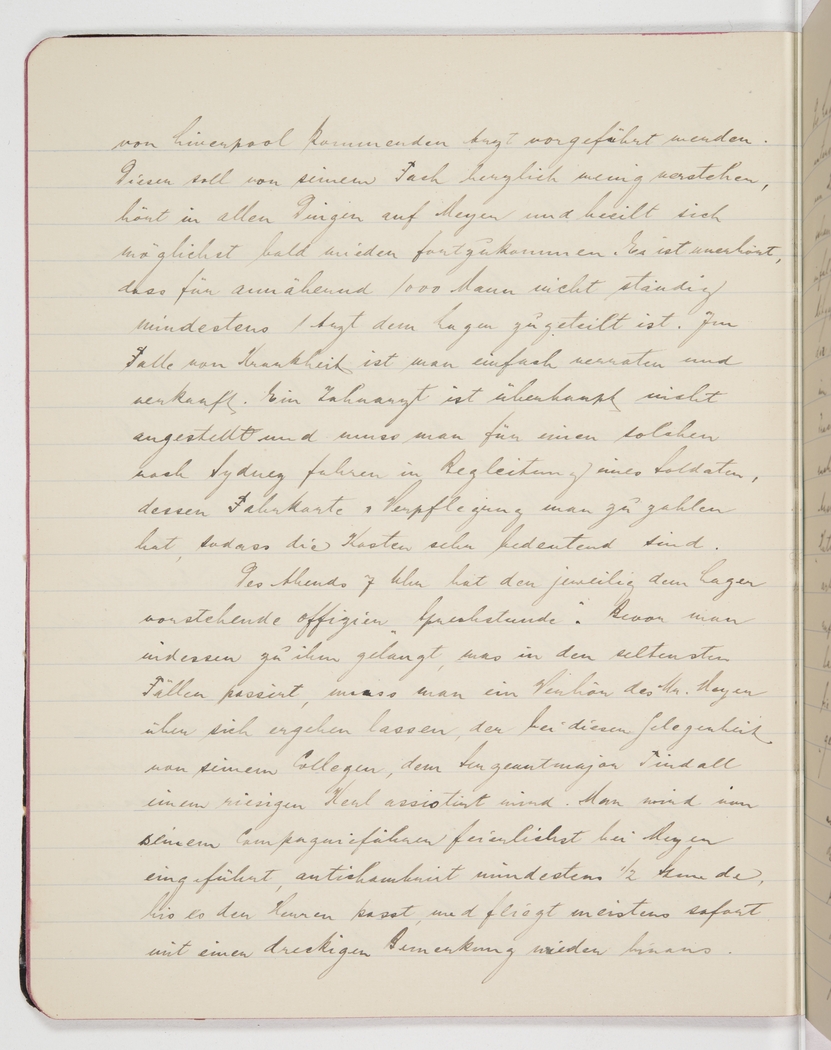 von Liverpool kommenden Arzt vorgeführt werden.
Dieser soll von seinem Fach herzlich wenig verstehen,
hört in allen Dingen auf Meyer und beeilt sich
möglichst bald wieder fortzukommen. Es ist unerhört,
dass für annähernd 1000 Mann nicht ständig
mindestens 1 Arzt dem Lager zugeteilt ist. Im
Falle von Krankheit ist man einfach verraten und
verkauft. Ein Zahnarzt ist überhaupt nicht
angestellt und muss man für einen solchen
nach Sydney fahren in Begleitung eines Soldaten,
dessen Fahrkarte & Verpflegung man zu zahlen
hat, sodass die Kosten sehr bedeutend sind.
Des Abends 7 Uhr hat der jeweilig dem Lager
vorstehende Offizier "Sprechstunde". Bevor man
indessen zu ihm gelangt, was in den seltensten
Fällen passirt, muss man ein Verhör des Mr. Meyer
über sich ergehen lassen, der bei dieser Gelegenheit
von seinem Collegen, dem Sergeantmajor Tindall
einem riesigen Kerl assistirt wird. Man wird von
seinem Compagnieführer feierlichst bei Meyer
eingeführt, antichambrirt mindestens 1/2 Stunde,
bis es den Herren passt, und fliegt meistens sofort
mit einer dreckigen Bemerkung wieder hinaus.